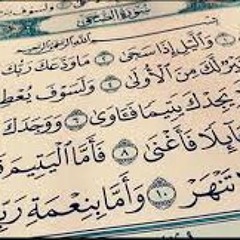 سورة الضحى
وَلَسَوْفَ
بِسْمِ اللَّهِ الرَّحْمَٰنِ الرَّحِيمِ
وَالَّيْلِ إِذَا سَجَىٰ ٢ مَا وَدَّعَكَ رَبُّكَ
خَيْرٌ لَّكَ مِنَ الْأُولَىٰ ٤ وَلَسَوْفَ يُعْطِ
يَجِدْكَ يَتِيمًا فَـَٔاوَىٰ ٦ وَوَجَدَكَ
عَآئِلًا فَأَغْنَىٰ ٨ فَأَمَّا الْيَتِيمَ فَ
تَنْهَرْ ١٠ وَأَمَّا بِنِعْمَةِ رَبِّ